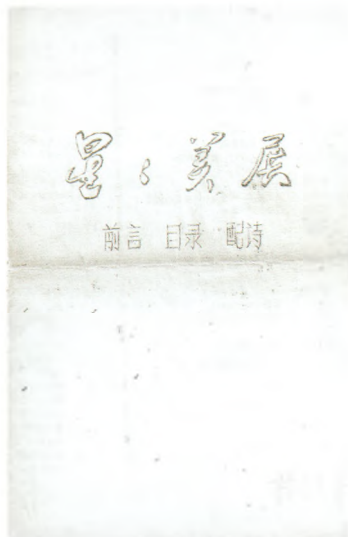 星々美展
前言 目录 配诗